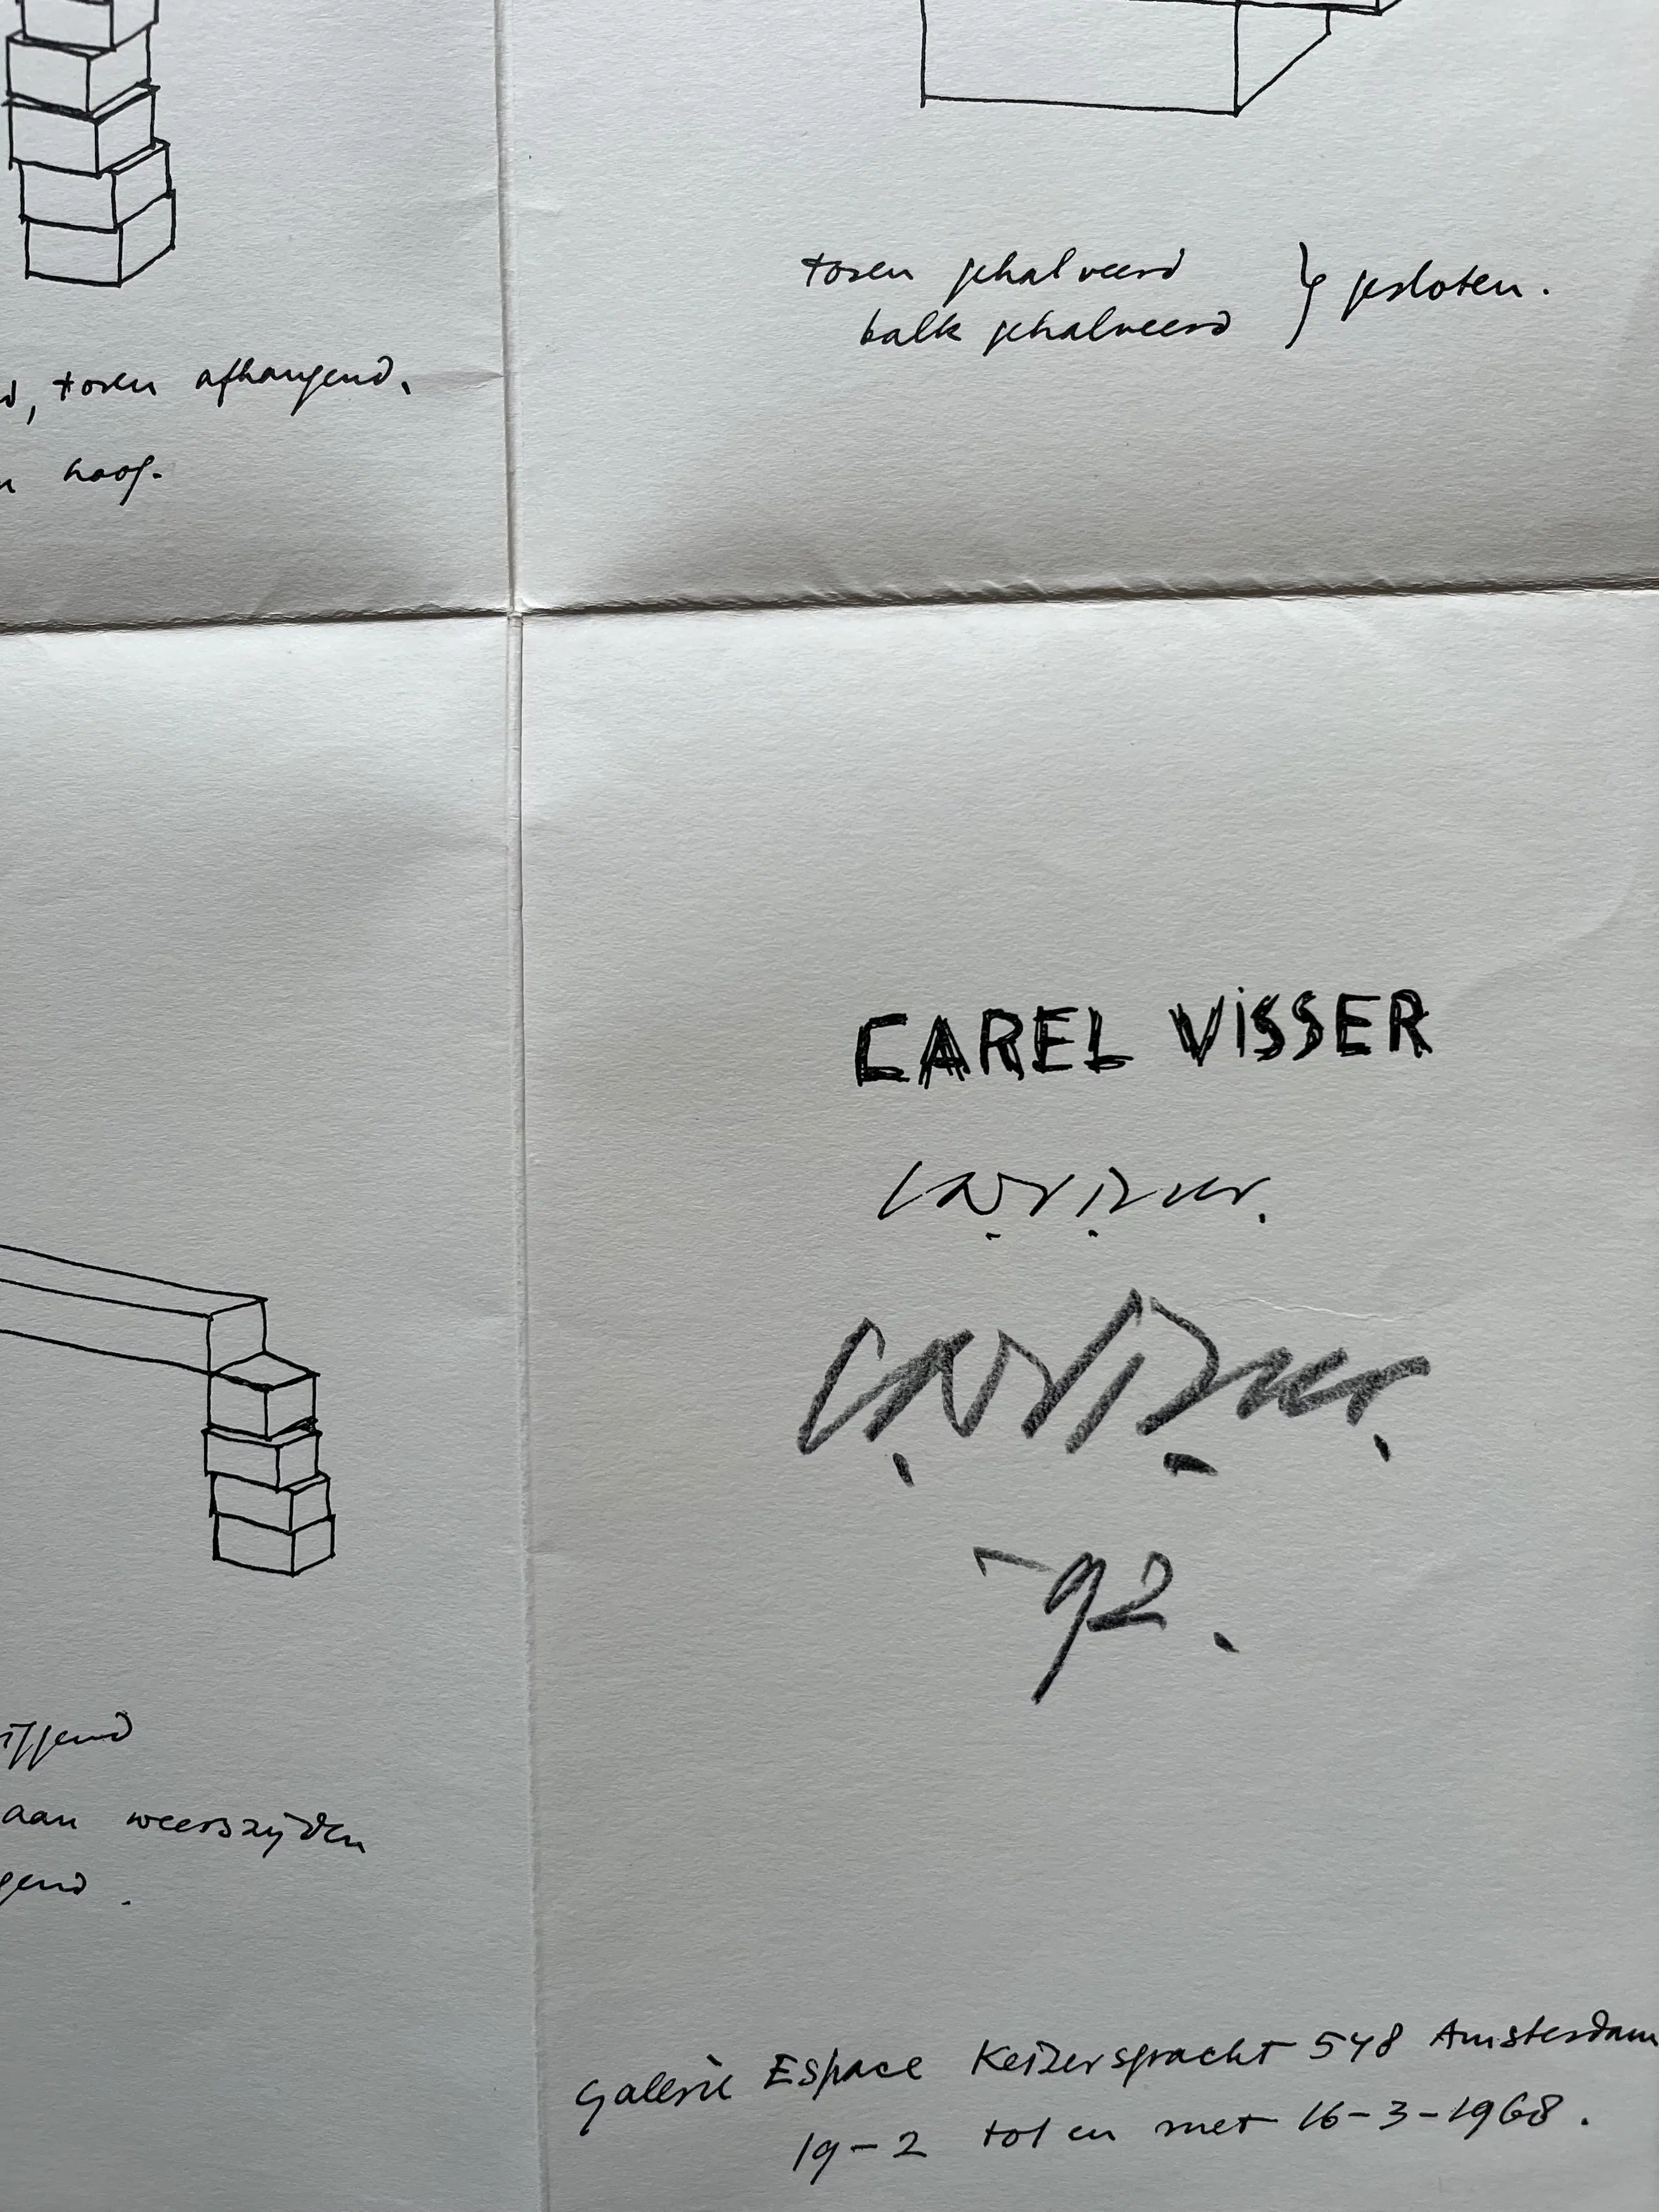 toren gehalveerd } gesloten.
balk gehalveerd
, toren afhangend.
hoog.
CAREL VISSER
-92.
aan weerszijden
Galerie Espace Keizersgracht 548 Amsterdam
19-2 tot en met 16-3-1968.